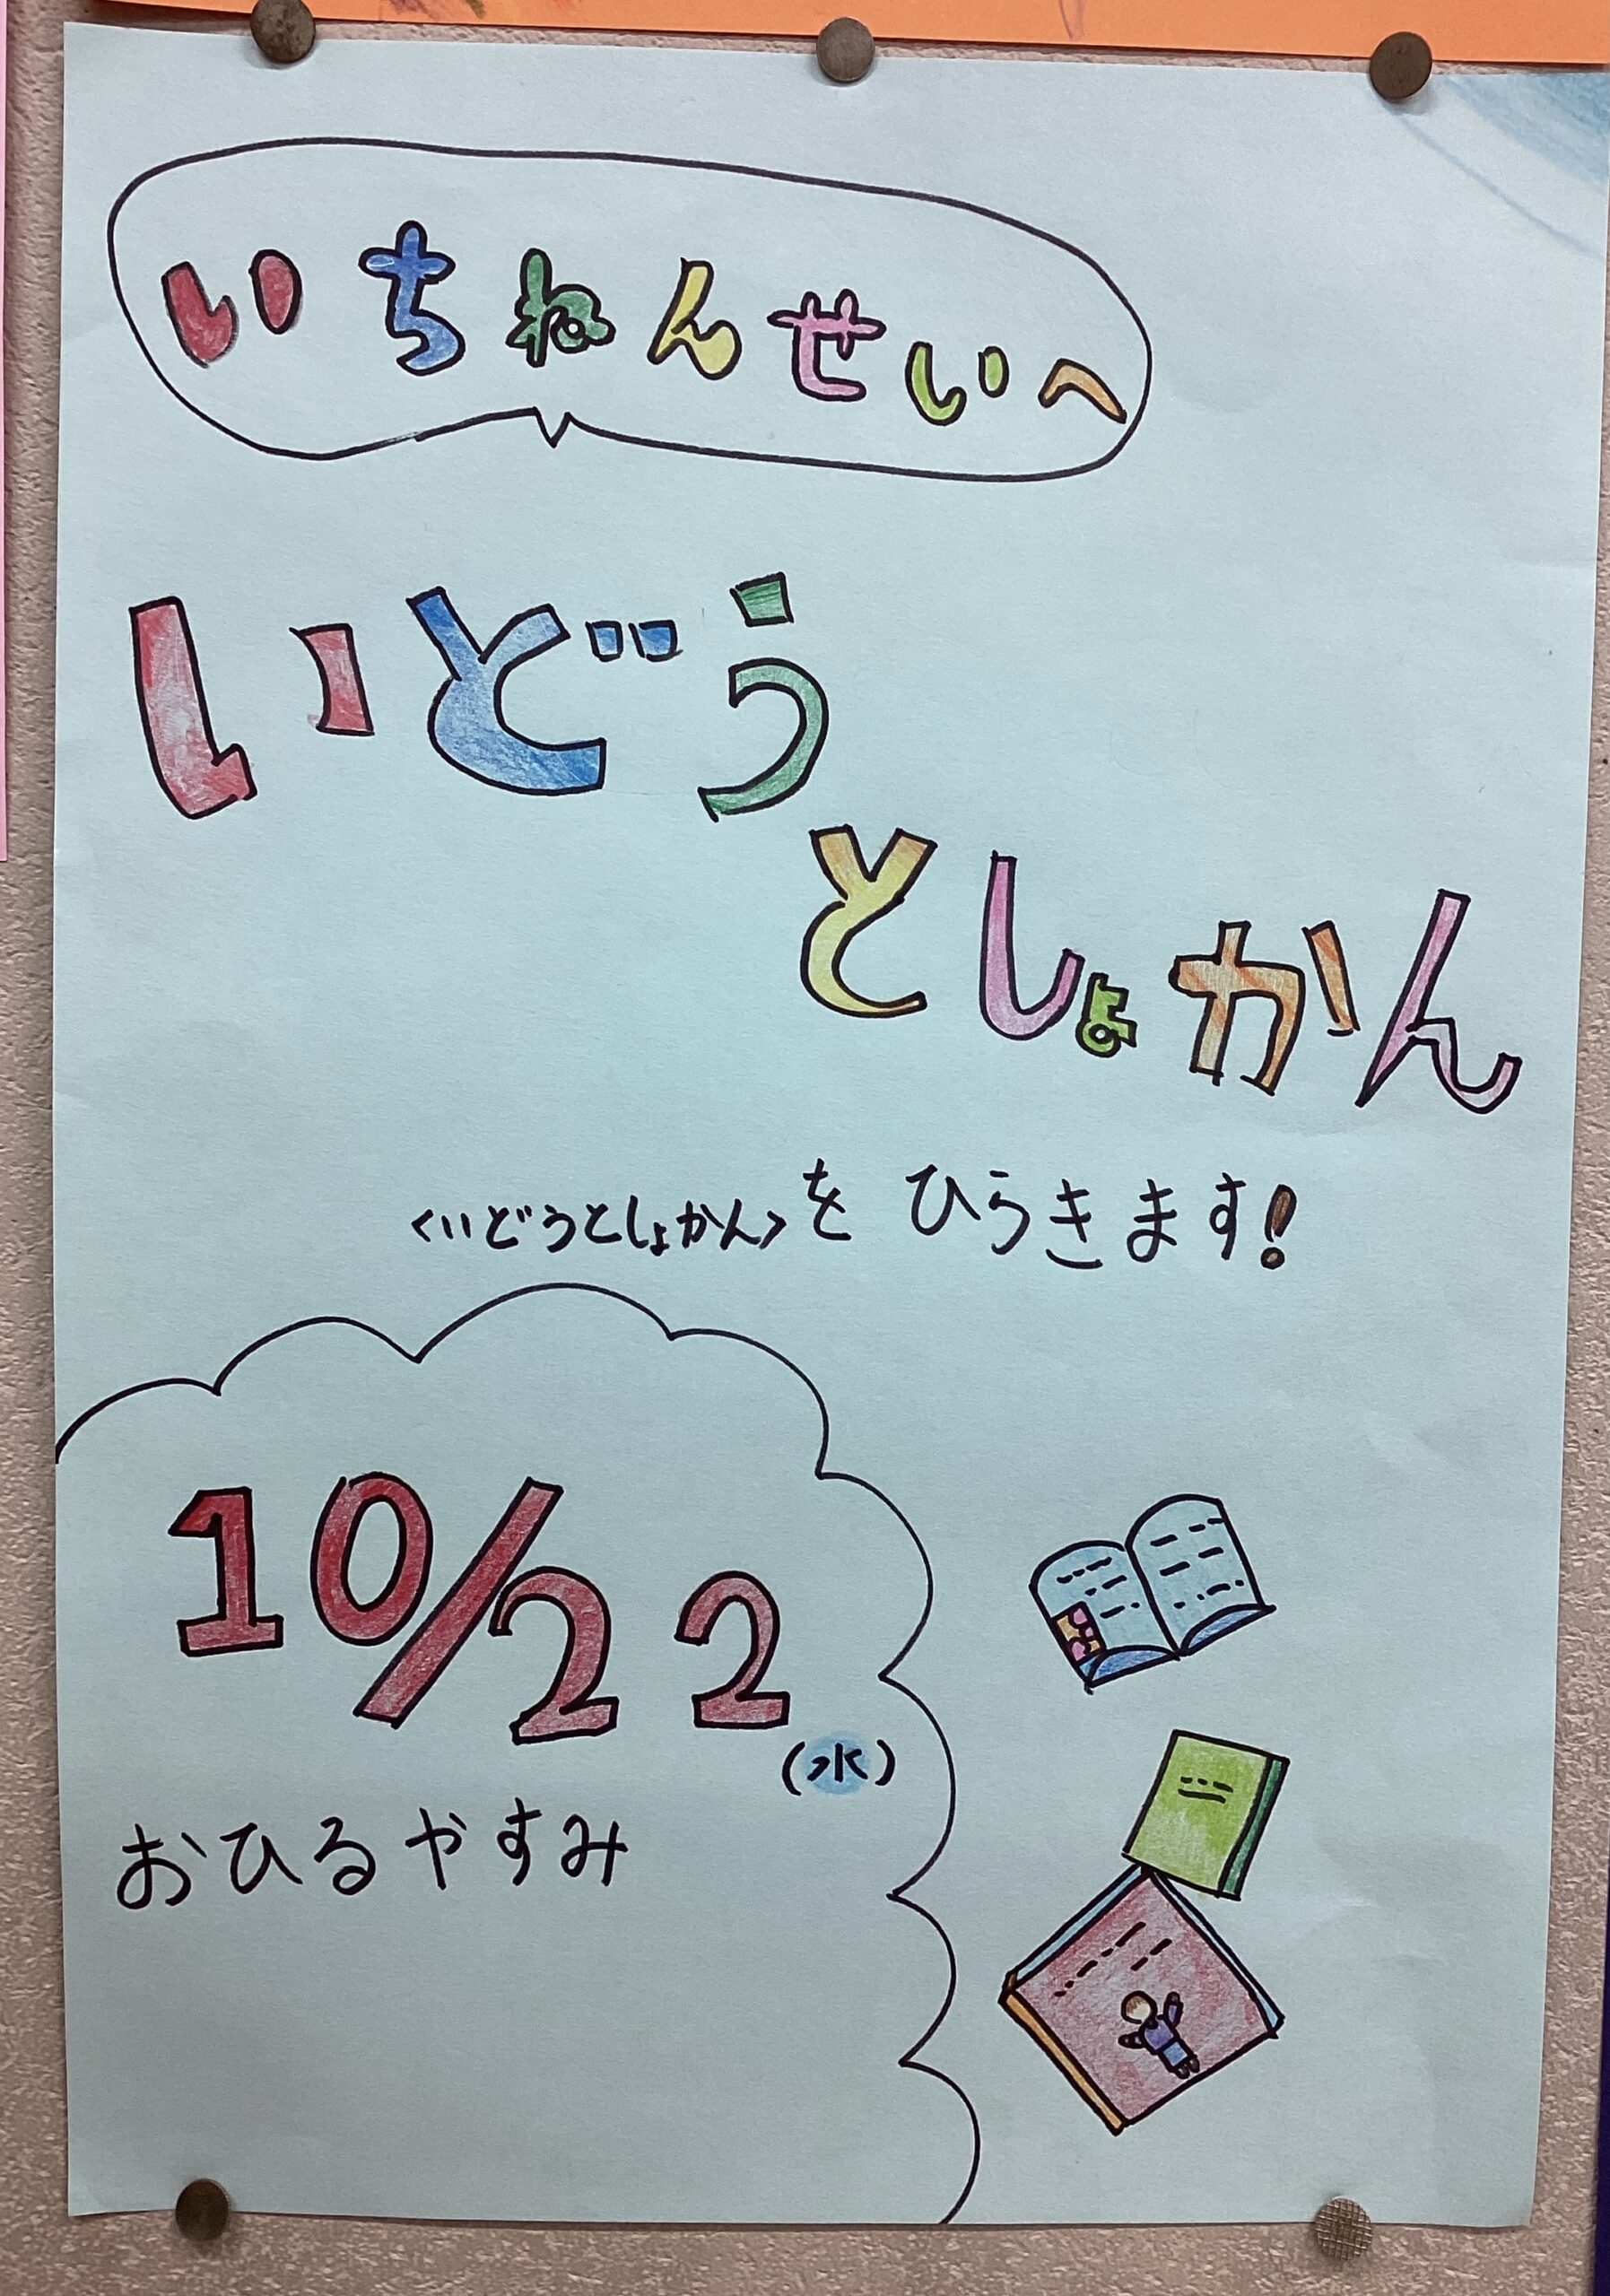 いちねんせいへ
いどう
としょかん
<いどうとしょかん>を ひらきます!
10/22
(水)
おひるやすみ